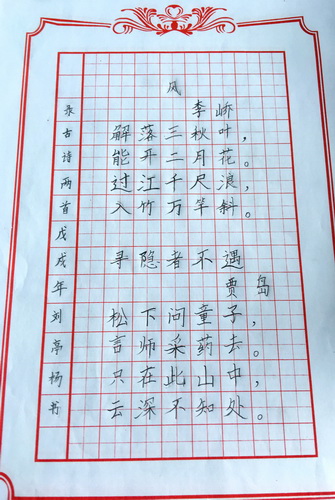 风
李峤
解落三秋叶，
能开二月花。
过江千尺浪，
入竹万竿斜。
寻隐者不遇
贾岛
松下问童子，
言师采药去。
只在此山中，
云深不知处。
录古诗两首戊戌年刘亭杨书